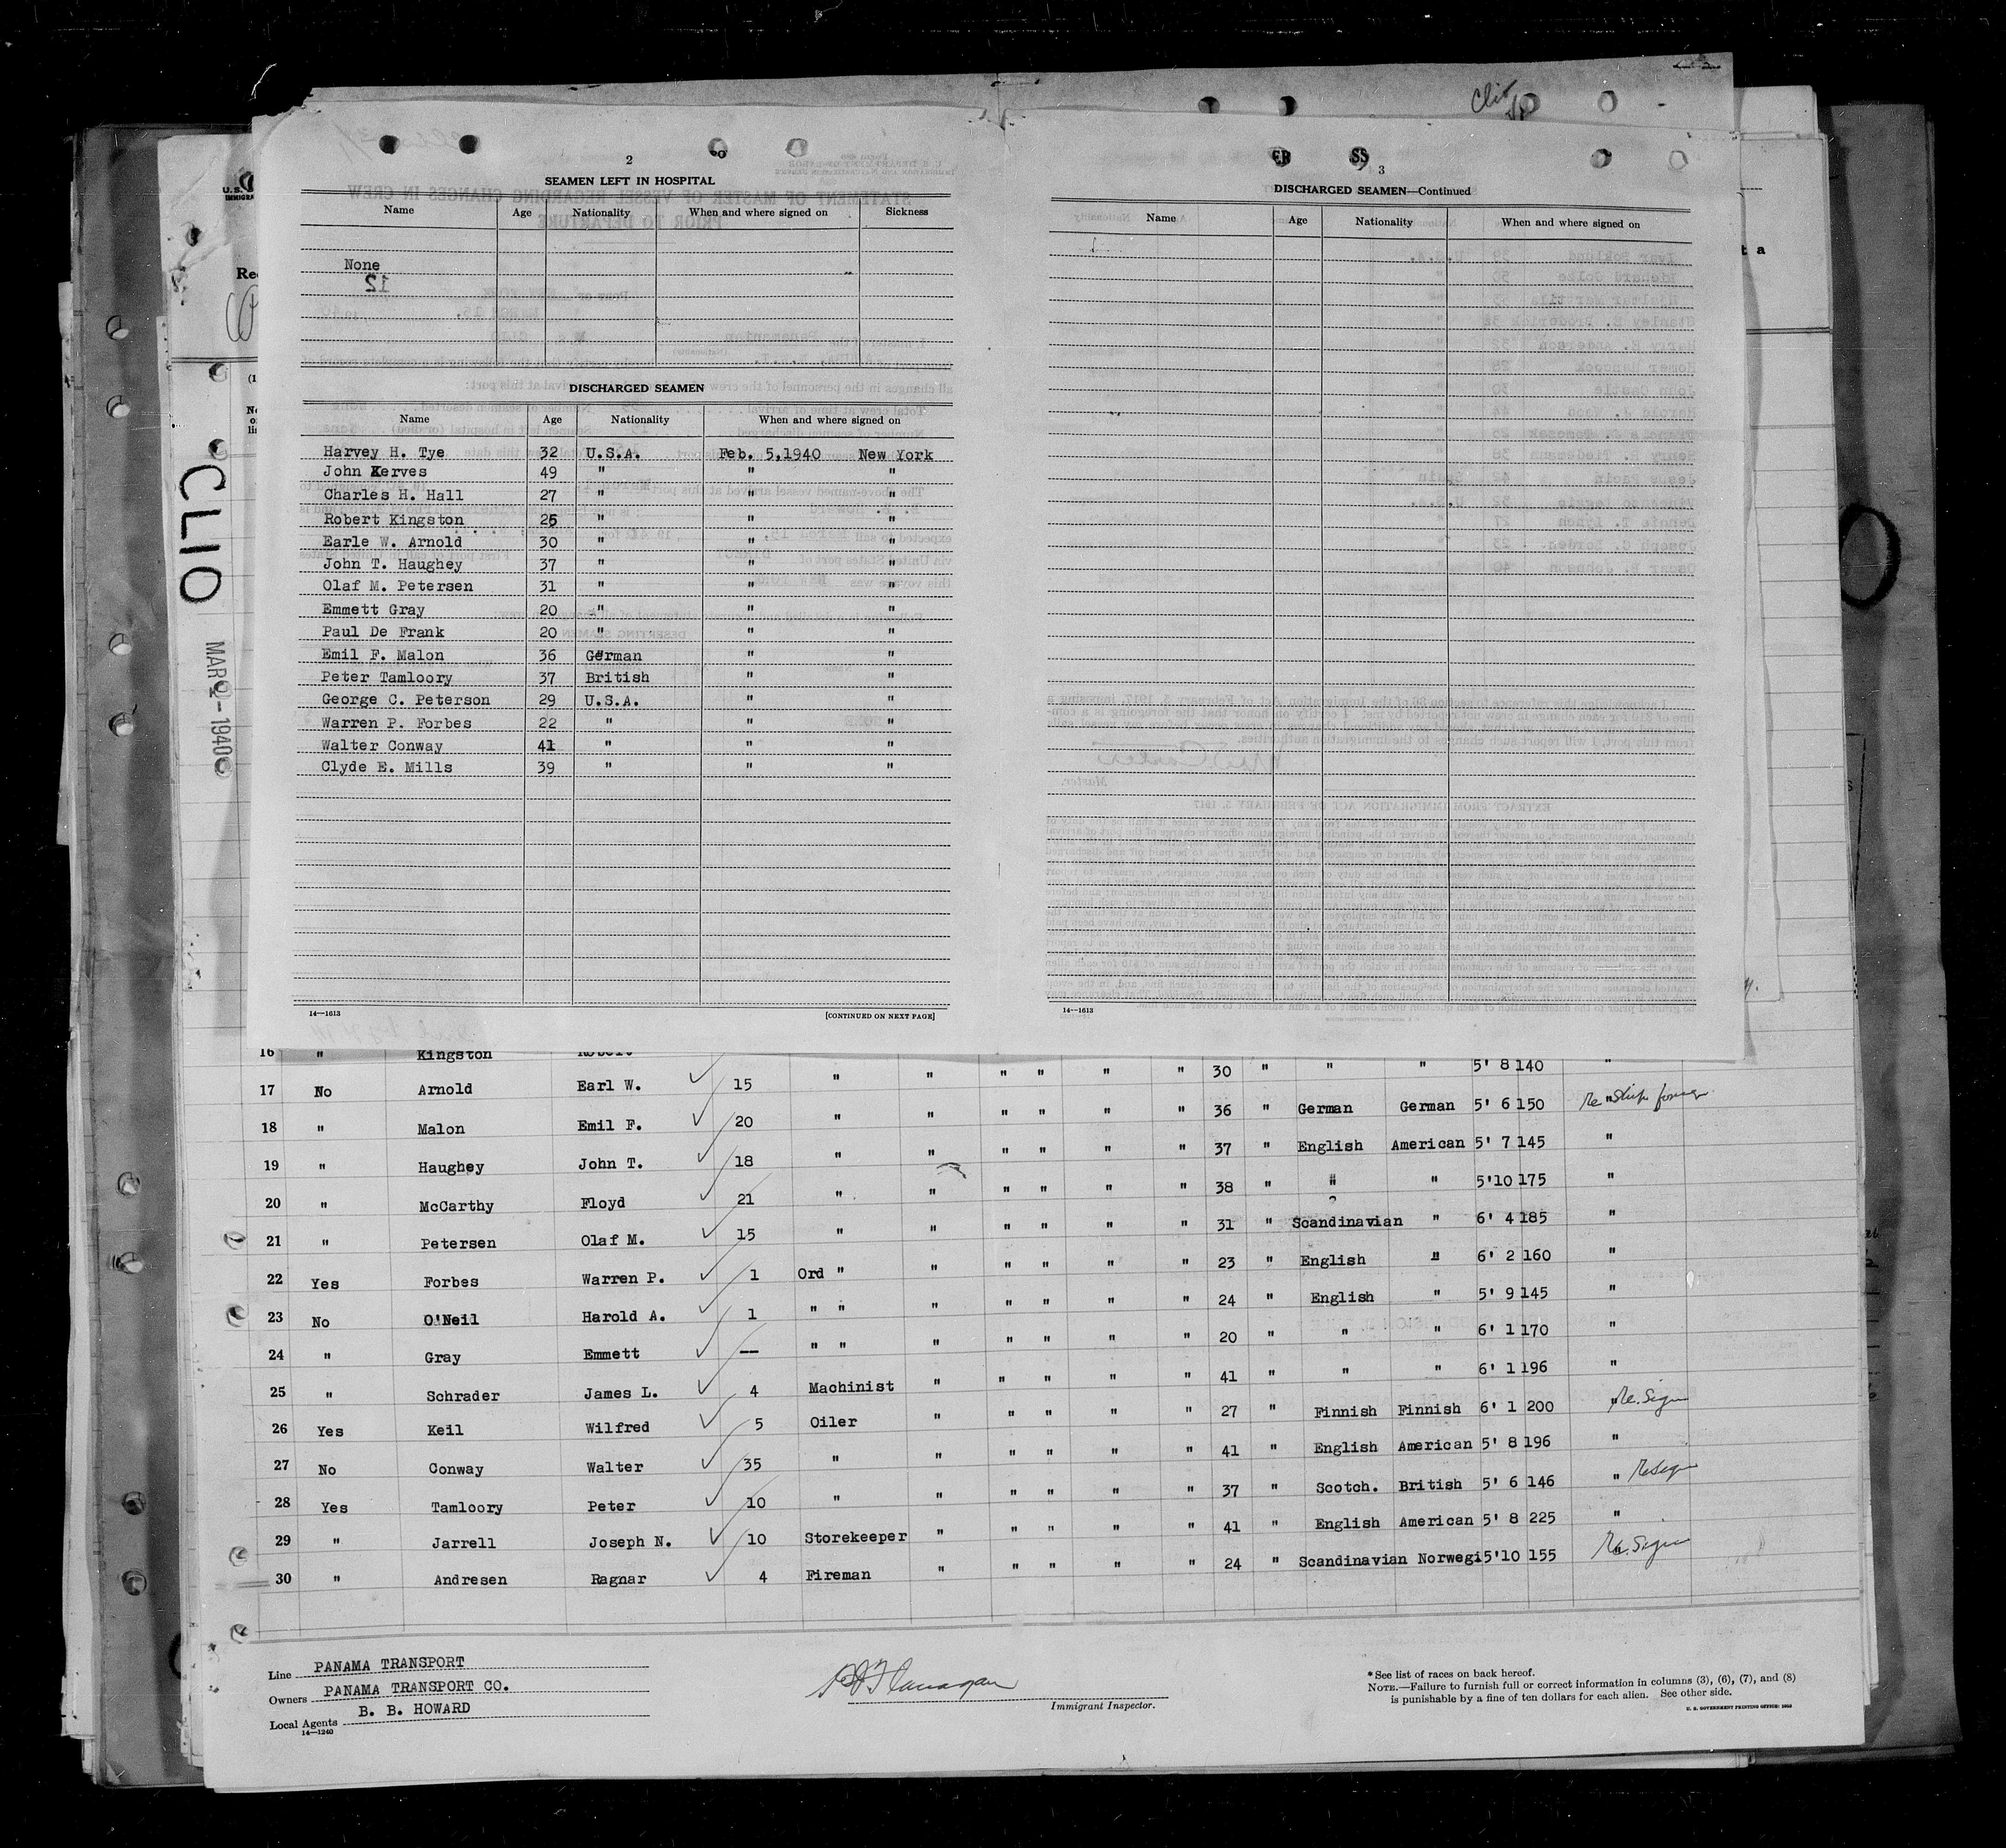 Clio
2
SEAMEN LEFT IN HOSPITAL
Name Age Nationality When and where signed on Sickness
None
12
DISCHARGED SEAMEN
Name Age Nationality When and where signed on
Harvey H. Tye 32 U.S.A. Feb. 5,1940 New York
John Kerves 49 " " "
Charles H. Hall 27 " " "
Robert Kingston 25 " " "
Earle W. Arnold 30 " " "
John T. Haughey 37 " " "
Olaf M. Petersen 31 " " "
Emmett Gray 20 " " "
Paul De Frank 20 " " "
Emil F. Malon 36 German " "
Peter Tamloory 37 British " "
George C. Peterson 29 U.S.A. " "
Warren P. Forbes 22 " " "
Walter Conway 41 " " "
Clyde E. Mills 39 " " "
14—1613 [CONTINUED ON NEXT PAGE]
3
DISCHARGED SEAMEN—Continued
Name Age Nationality When and where signed on
14—1613
U.S.
CLIO
MAR 2 - 1940
16 " Kingston Robert
17 No Arnold Earl W. 15 " " " " " " 30 " " " 5' 8 140 "
18 " Malon Emil F. 20 " " " " " " 36 " German German 5' 6 150 " Re Ship foreign
19 " Haughey John T. 18 " " " " " " 37 " English American 5' 7 145 "
20 " McCarthy Floyd 21 " " " " " " 38 " " " 5'10 175 "
21 " Petersen Olaf M. 15 " " " " " " 31 " Scandinavian " 6' 4 185 "
22 Yes Forbes Warren P. 1 Ord " " " " " " 23 " English " 6' 2 160 "
23 No O'Neil Harold A. 1 " " " " " " " 24 " English " 5' 9 145 "
24 " Gray Emmett -- " " " " " " " 20 " " " 6' 1 170 "
25 " Schrader James L. 4 Machinist " " " " " 41 " " " 6' 1 196 "
26 Yes Keil Wilfred 5 Oiler " " " " " 27 " Finnish Finnish 6' 1 200 " Re. Sign
27 No Conway Walter 35 " " " " " " 41 " English American 5' 8 196 "
28 Yes Tamloory Peter 10 " " " " " " 37 " Scotch. British 5' 6 146 " Re Sign
29 " Jarrell Joseph N. 10 Storekeeper " " " " " 41 " English American 5' 8 225 "
30 " Andresen Ragnar 4 Fireman " " " " " 24 " Scandinavian Norwegi 5'10 155 " Re. Sign
Line PANAMA TRANSPORT
Owners PANAMA TRANSPORT CO.
Local Agents B. B. HOWARD
14—1240
Immigrant Inspector.
*See list of races on back hereof.
NOTE.—Failure to furnish full or correct information in columns (3), (6), (7), and (8)
is punishable by a fine of ten dollars for each alien. See other side.
U. S. GOVERNMENT PRINTING OFFICE